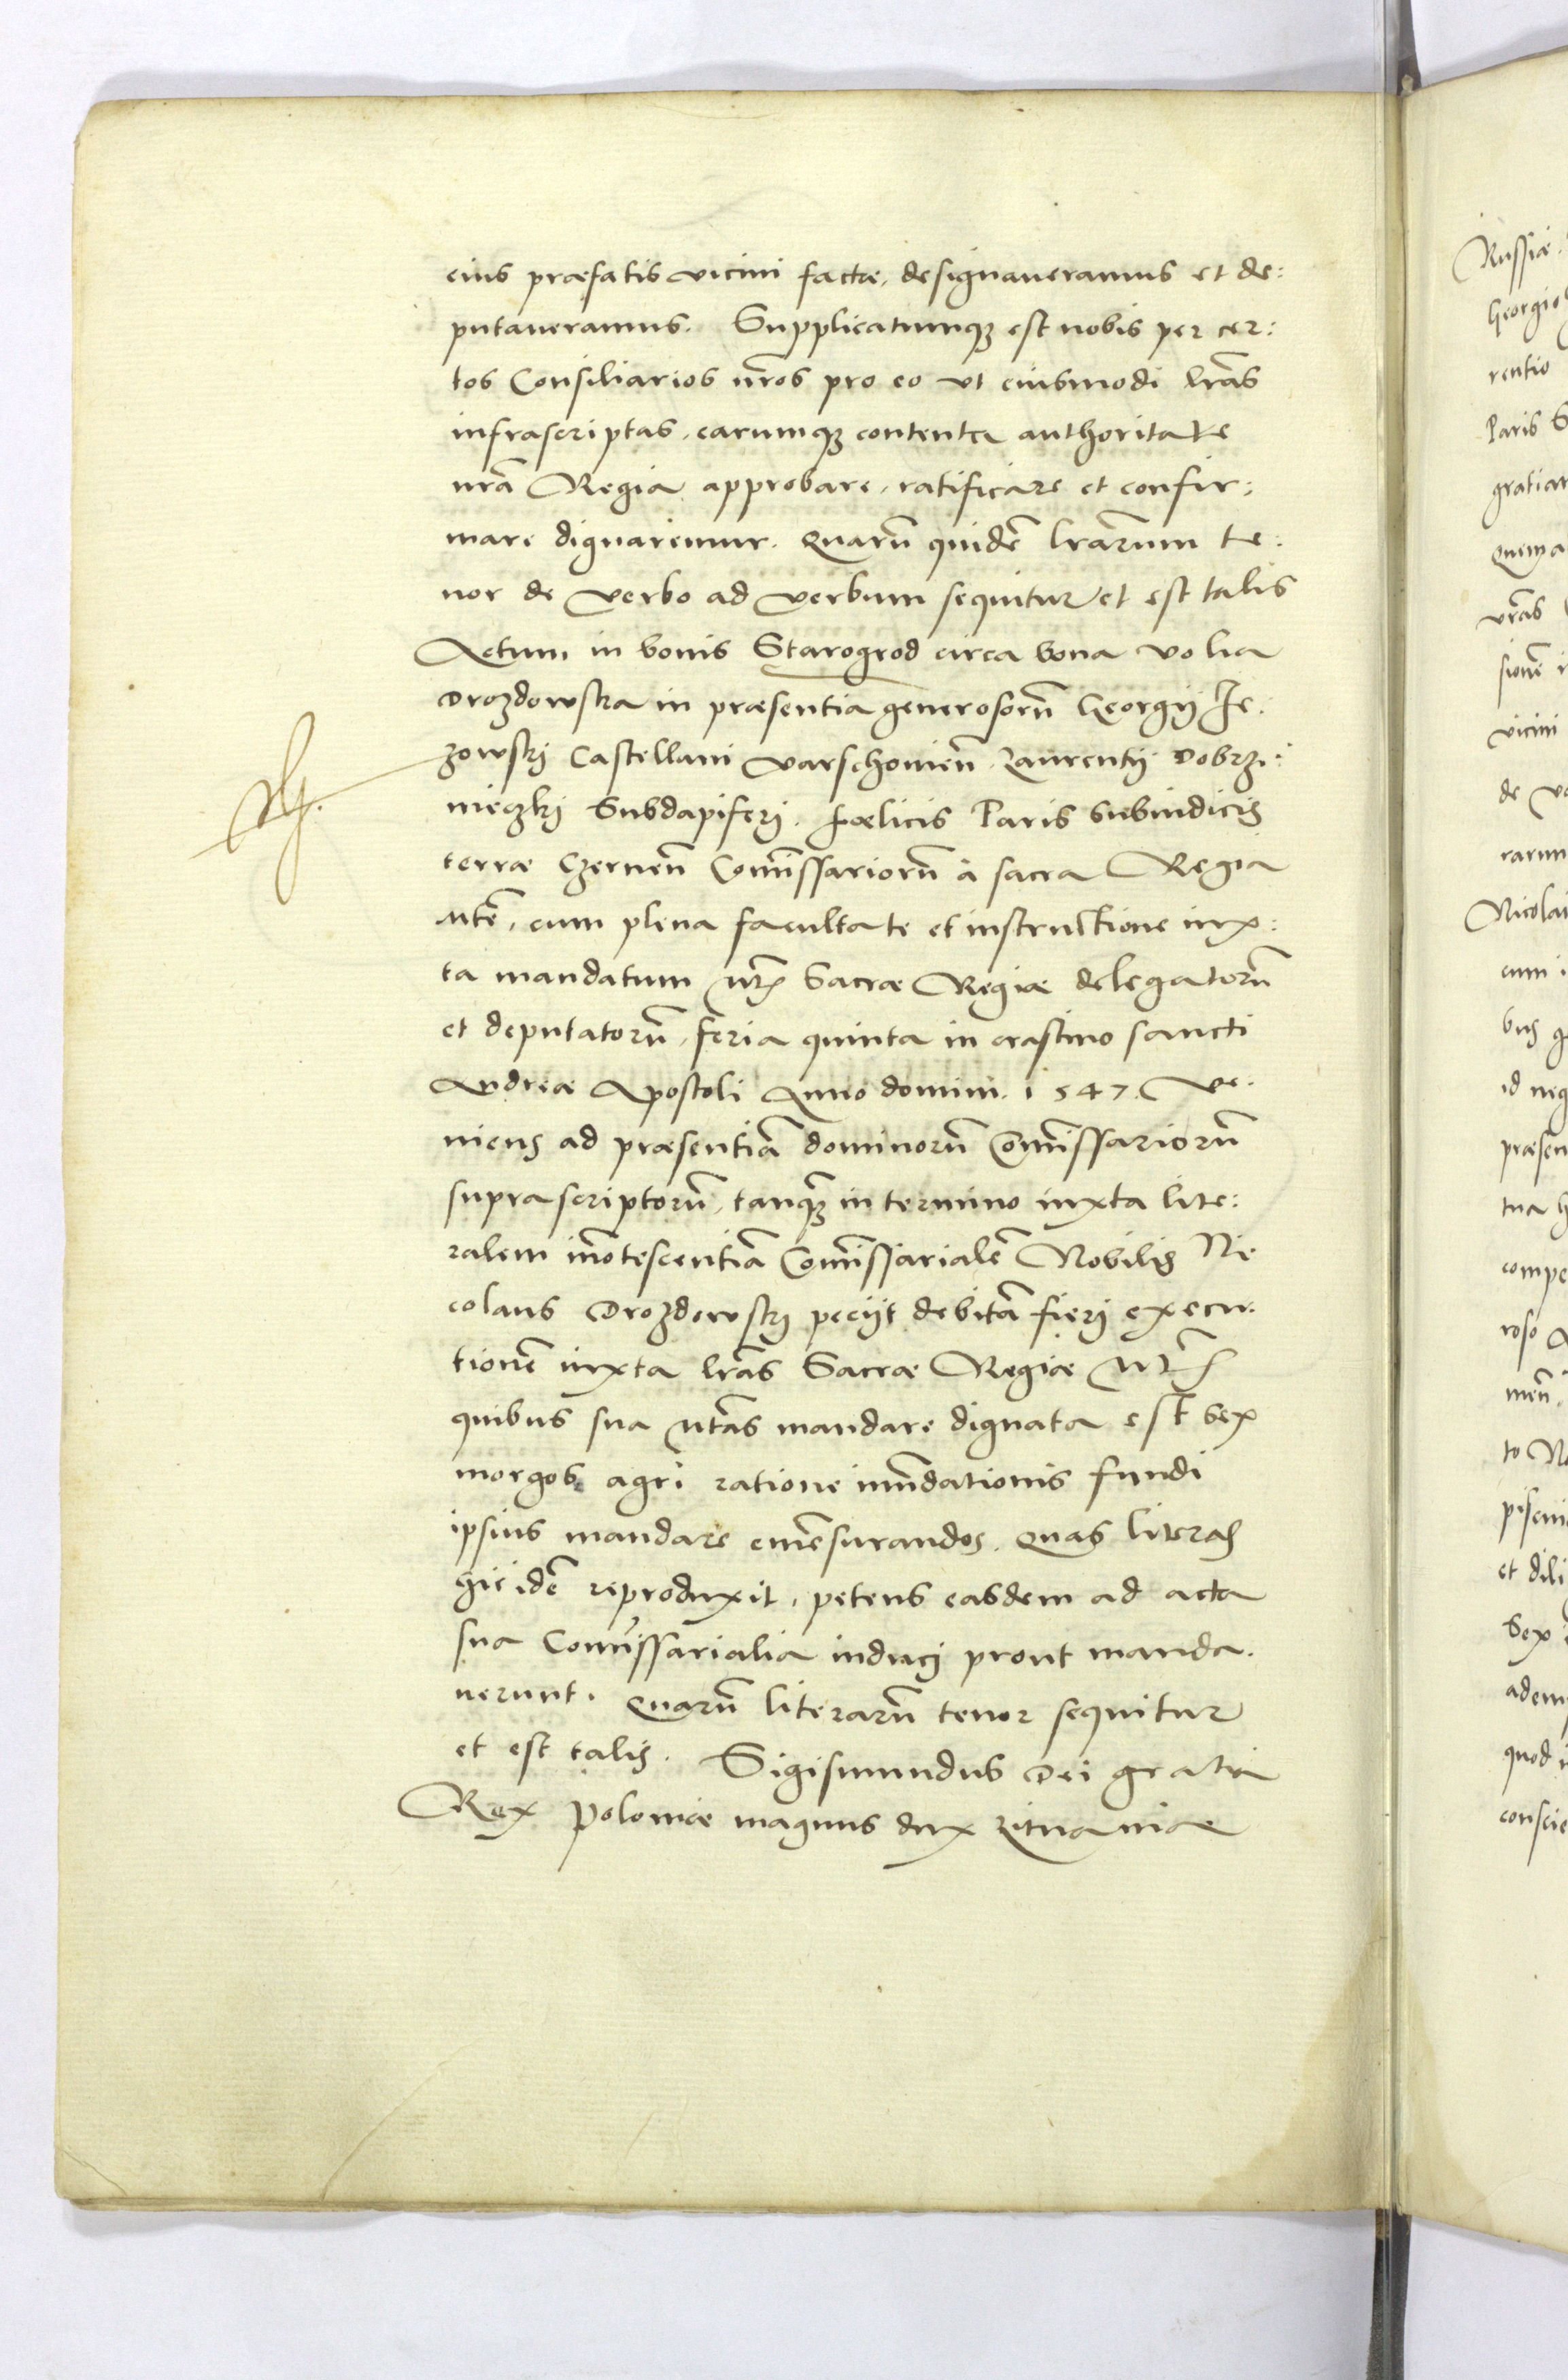 eius præfatis vicini factæ, designaveramus et de:
putaveramus. Supplicatumq3 est nobis per cer:
tos Consiliarios nr̃os pro eo ut eiusmodi lr̃as
infrascriptas, earumq3 contenta authoritate
nr̃a Regia approbare, ratificare et confir:
mare dignaremur. Quarũ quidẽ lr̃arum te:
nor de verbo ad verbum sequitur et est talis
Actum in bonis Starogrod circa bona volia
Drozdowska in præsentia generosorũ Georgij Je:
zowskj Castellani varschovieñ. Laurentij Dobrzi:
nieczkj Subdapiferj. Fœlicis Paris Subiudicis
terræ Czerneñ Com̃issariorũ à sacra Regia
Mte͂, cum plena facultate et instructione iux:
ta mandatum Mt͂is Sacræ Regiæ delegatorũ
et deputatorũ, feria quinta in crastino sancti
Andreæ Apostoli Anno domini. 1547. Ve:
niens ad præsentiã dominorũ Com̃issariorũ
suprascriptorũ, tanq3 in termino iuxta lite:
ralem iñotescentiã Com̃issarialẽ Nobilis Ni
colaus Drozdowskj peciit debitã fierj execu:
tionẽ iuxta lr̃as Sacræ Regiæ Mt͂is
quibus sua Mt͂as mandare dignata est sex
morgos agri ratione inũdationis fundi
ipsius mandare emẽsurandos. Quas literas
hic idẽ reproduxit, petens easdem ad acta
sua Com̃issarialia inducj prout manda:
verunt. Quarũ literarũ tenor sequitur
et est talis. Sigismundus Dei gratia
Rex Poloniæ magnus dux Lituaniæ
Russiæ
Georgio
rentio
Paris S
gratiam
vr̃as
sionẽ
vicini
de
rarum
Nicolai
cum i
bus
id neg
præsen
tua
compe
roso
to
et dili
Sex
adem
quod
conscie